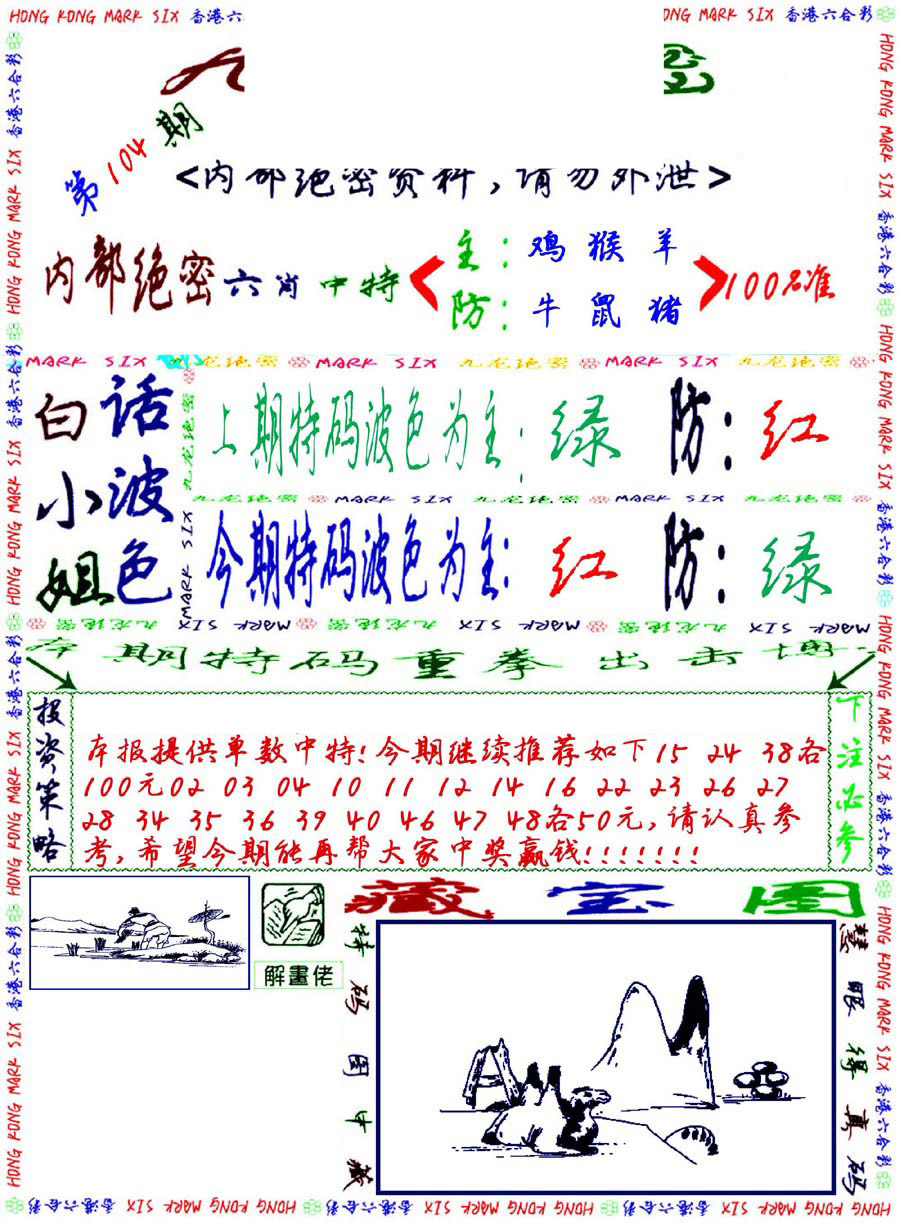 HONG KONG MARK SIX 香港六
ONG MARK SIX 香港六合彩
第104期
<内部绝密资料,请勿外泄>
内部绝密六肖中特
主:鸡猴羊
防:牛鼠猪
100%准
MARK SIX 九龙绝密 MARK SIX 九龙绝密 MARK SIX 九龙绝密
白话小波姐色
上期特码波色为主:绿 防:红
九龙绝密 MARK SIX 九龙绝密 MARK SIX 九龙绝密
今期特码波色为主:红 防:绿
MARK SIX 九龙绝密 MARK SIX 九龙绝密 MARK SIX 九龙绝密
本期特码重拳出击博
投资策略
本报提供单数中特!今期继续推荐如下15 24 38各
100元02 03 04 10 11 12 14 16 22 23 26 27
28 34 35 36 39 40 46 47 48各50元,请认真参
考,希望今期能再帮大家中奖赢钱!!!!!!!
下注必参
解畫佬
藏宝图
特码图中藏
慧眼得真码
HONG KONG MARK SIX 香港六合彩